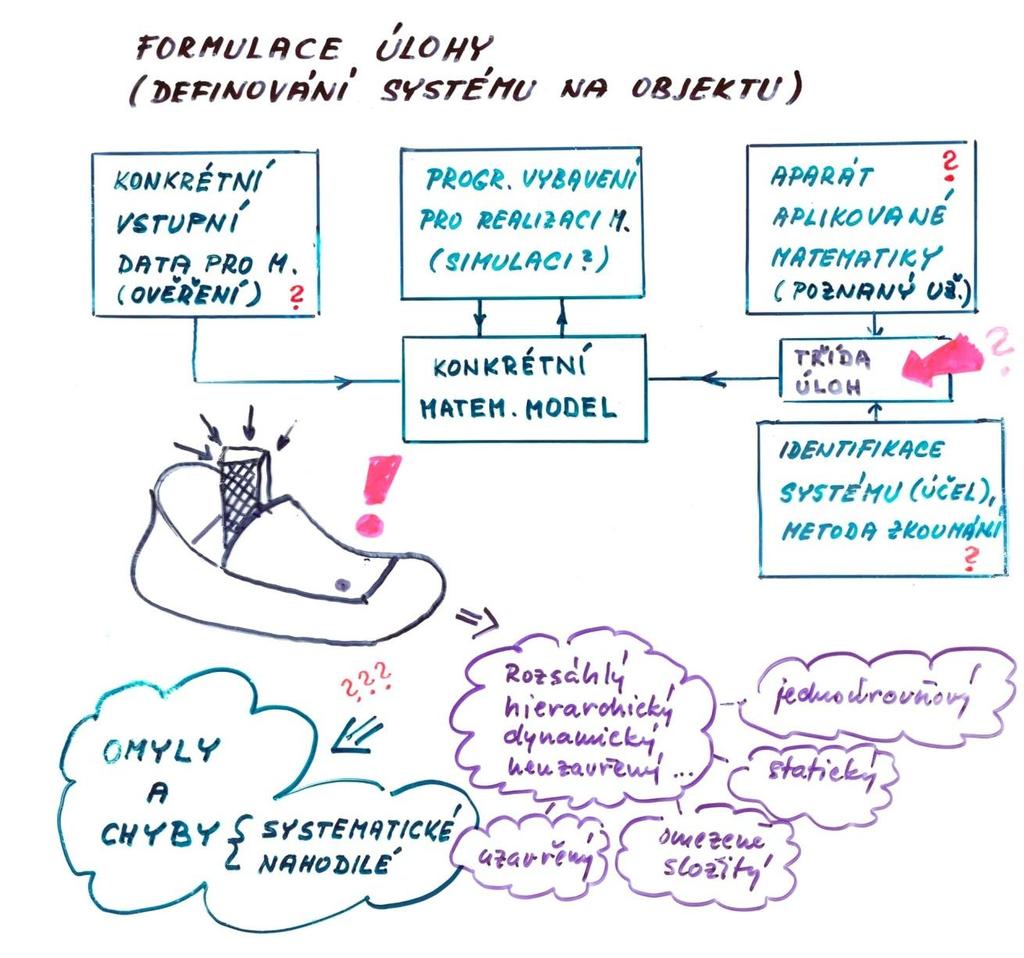 FORMULACE ÚLOHY
(DEFINOVÁNÍ SYSTÉMU NA OBJEKTU)
KONKRÉTNÍ
VSTUPNÍ
DATA PRO M.
(OVĚŘENÍ) ?
PROGR. VYBAVENÍ
PRO REALIZACI M.
(SIMULACI?)
APARÁT ?
APLIKOVANÉ
MATEMATIKY
(POZNANÝ UŽ.)
KONKRÉTNÍ
MATEM. MODEL
TŘÍDA
ÚLOH
?
IDENTIFIKACE
SYSTÉMU (ÚČEL),
METODA ZKOUMÁNÍ
?
!
???
OMYLY
A
CHYBY { SYSTEMATICKÉ
NAHODILÉ
Rozsáhlý
hierarchický
dynamický
neuzavřený ...
jednoúrovňový
statický
uzavřený
omezeně
složitý